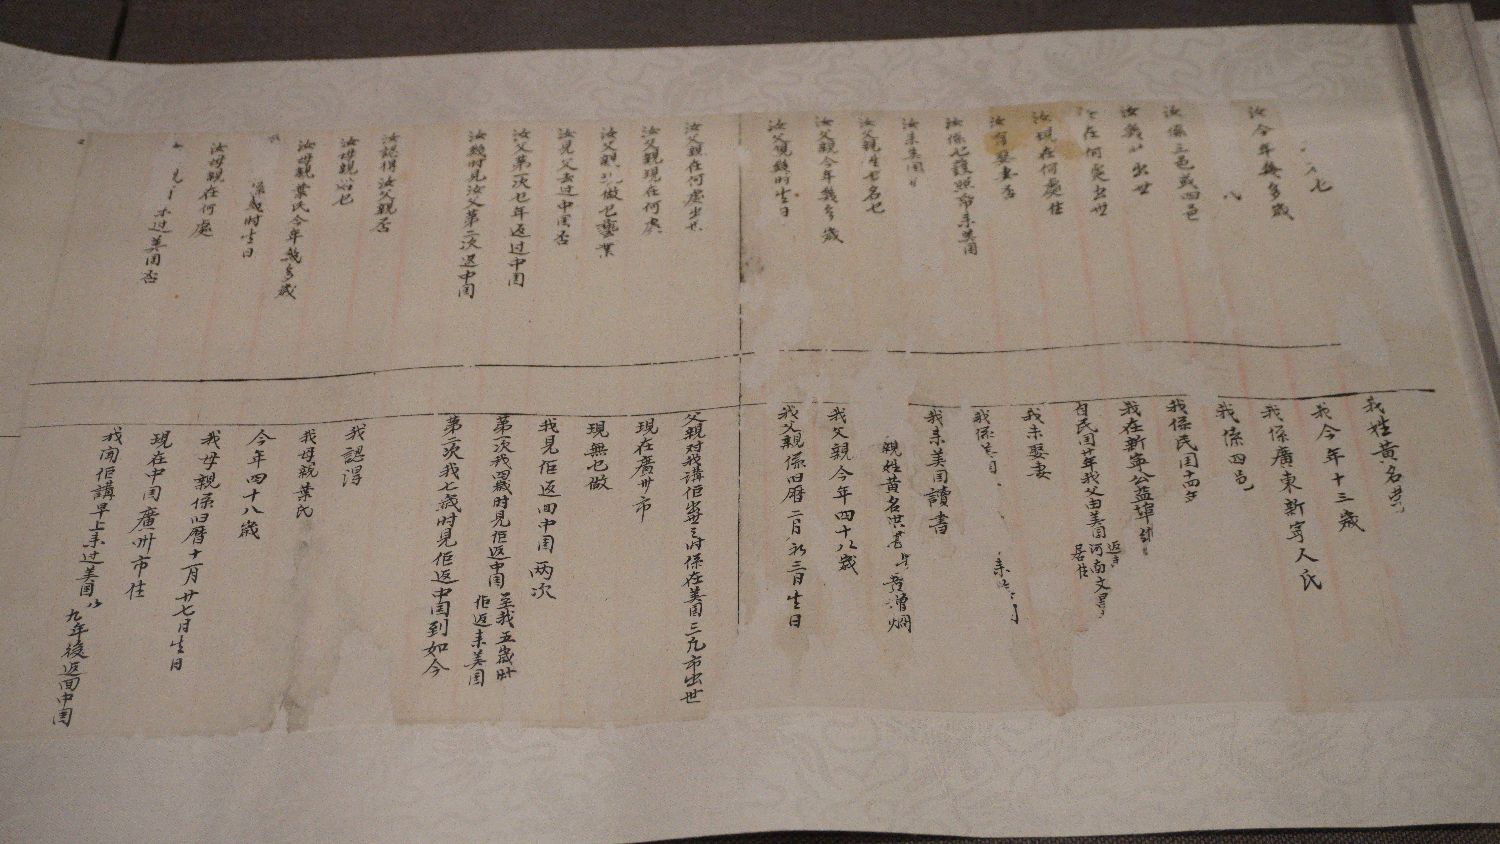 七
我姓黃名
汝今年幾多歲
我今年十三歲
我係廣東新寧人氏
汝係三邑或四邑
我係四邑
汝幾時出世
我係民國十四年
在何處出世
我在新寧公益埠
汝現在何處住
自民國廿年我父由美國返
河南文
居住
汝有娶妻否
我未娶妻
汝係乜護照命來美國
我係
來
汝來美國
我來美國讀書
汝父親姓甚名乜
親姓黃名洪
汝父親今年幾多歲
我父親今年四十八歲
汝父親幾時生日
我父親係旧曆二月初三日生日
汝父親在何處出世
父親对我講佢出世之时係在美国三凡市出世
汝父親現在何處
現在廣州市
汝父親做乜藝業
現無乜做
汝見父去过中国否
我見佢返回中国两次
汝父第一次乜年返过中国
第一次我四歲时見佢返中国
至我五歲时佢返來美国
汝幾时見汝父第二次返中国
第二次我七歲时見佢返中国到如今
汝認得汝父親否
我認得
汝母親姓乜
我母親葉氏
汝母親葉氏今年幾多歲
今年四十八歲
幾时生日
我母親係旧曆十一月廿七日生日
汝母親在何處
現在中国廣州市住
过美国否
我聞佢講早上來过美国
九年後返回中国